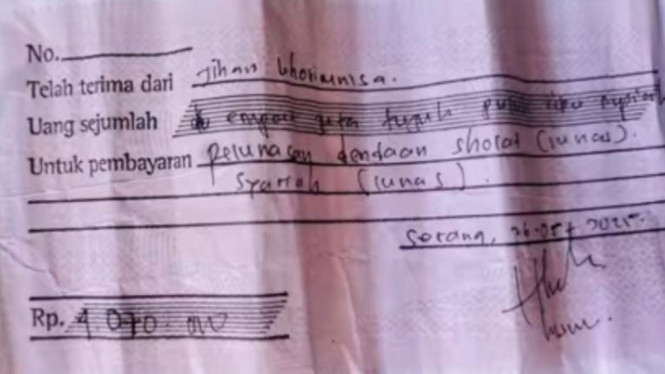 No.
Telah terima dari Jihan khorinnisa.
Uang sejumlah empat juta tujuh puluh ribu rupiah
Untuk pembayaran pelunasan dendaan sholat (lunas).
syariah (lunas).
Serang, 26-05-2025
Rp. 4.070.000